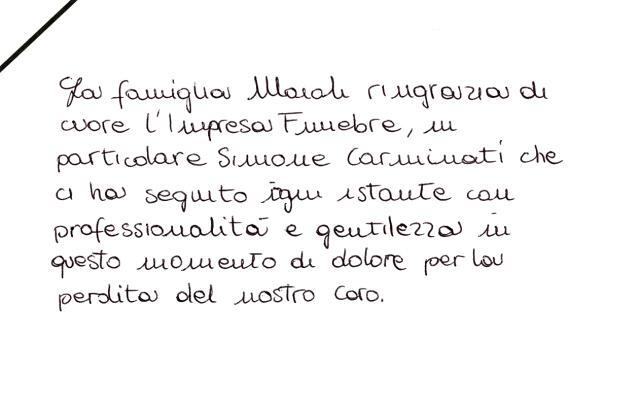 La famiglia ringrazia di
cuore l'Impresa Funebre, in
particolare Simone Carminati che
ci ha seguito ogni istante con
professionalità e gentilezza in
questo momento di dolore per la
perdita del nostro caro.